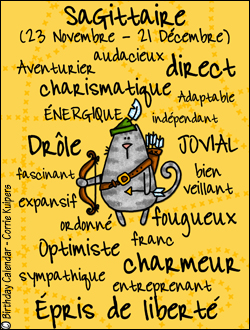 Sagittaire
(23 Novembre - 21 Décembre)
audacieux
Aventurier
direct
charismatique
Adaptable
ÉNERGIQUE
indépendant
Drôle
JOVIAL
fascinant
bien
veillant
expansif
ordonné
fougueux
franc
Optimiste
charmeur
sympathique
entreprenant
Épris de liberté
© Birthday Calendar - Corrie Kuipers